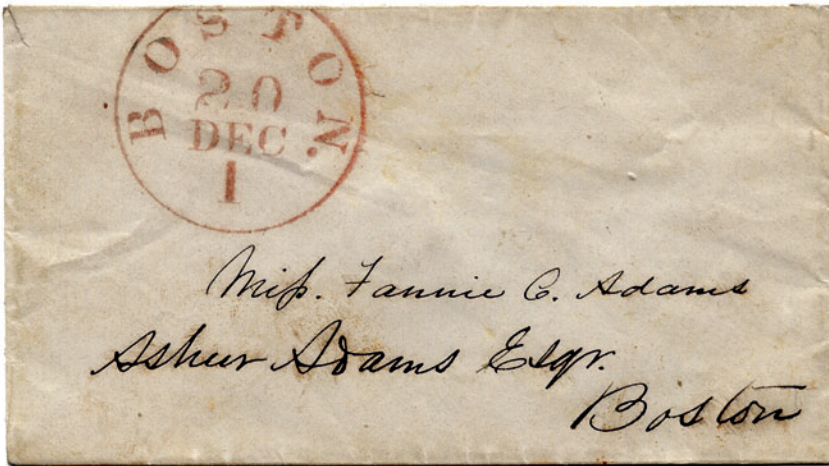 BOSTON.
20
DEC
1
Miſs. Fannie C. Adams
Asher Adams Esqr.
Boston